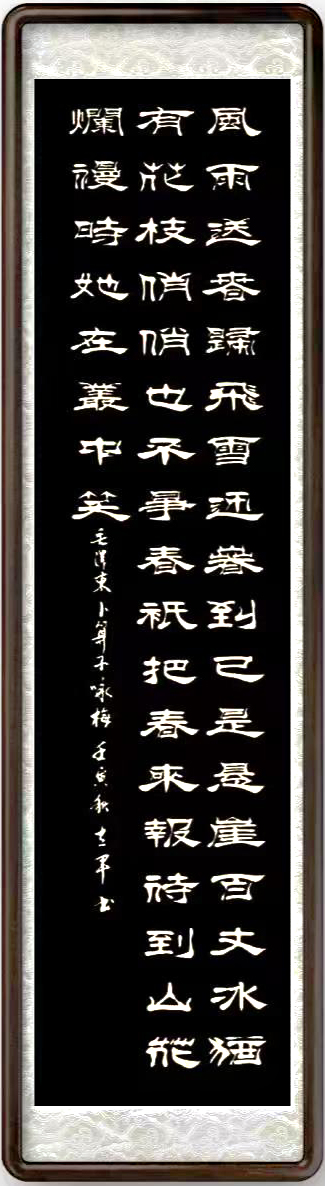 風雨送春歸飛雪迎春到已是懸崖百丈冰猶
有花枝俏俏也不爭春祇把春來報待到山花
爛漫時她在叢中笑
毛澤東卜算子咏梅 壬寅秋 志軍書